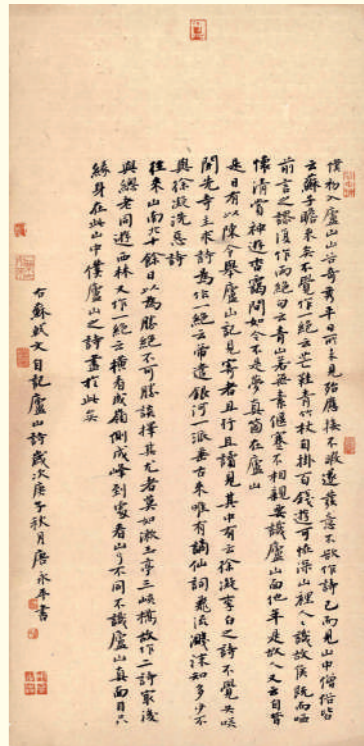 僕初入廬山山谷奇秀平日所未見殆應接不暇遂發意不欲作詩已而見山中僧俗皆
云蘇子瞻來矣不覺作一絕云芒鞋青竹杖自掛百錢遊可怪深山裡人〻識故侯既而哂
前言之謬復作兩絕句云青山若無素偃蹇不相親要識廬山面他年是故人又云自昔
懷清賞神遊杳靄間如今不是夢真箇在廬山
是日有以陳令舉廬山記見寄者且行且讀見其中有云徐凝李白之詩不覺失咲
開先寺主求詩為作一絕云帝遣銀河一派垂古來唯有謫仙詞飛流濺沫知多少不
與徐凝洗惡詩
往來山南北十餘日以為勝絕不可勝談擇其尤者莫如漱玉亭三峽橋故作二詩最後
與總老同遊西林又作一絕云橫看成嶺側成峰到處看山了不同不識廬山真面目只
緣身在此山中僕廬山之詩盡於此矣
右蘇軾文自記廬山詩歲次庚子秋月唐永平書